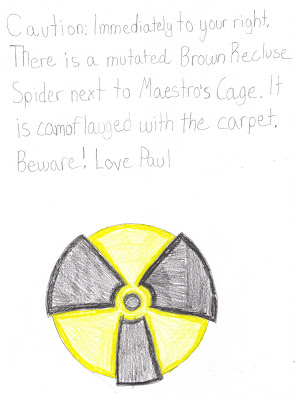 Caution: Immediately to your right.
There is a mutated Brown Recluse
Spider next to Maestro's Cage. It
is camoflauged with the carpet.
Beware! Love Paul